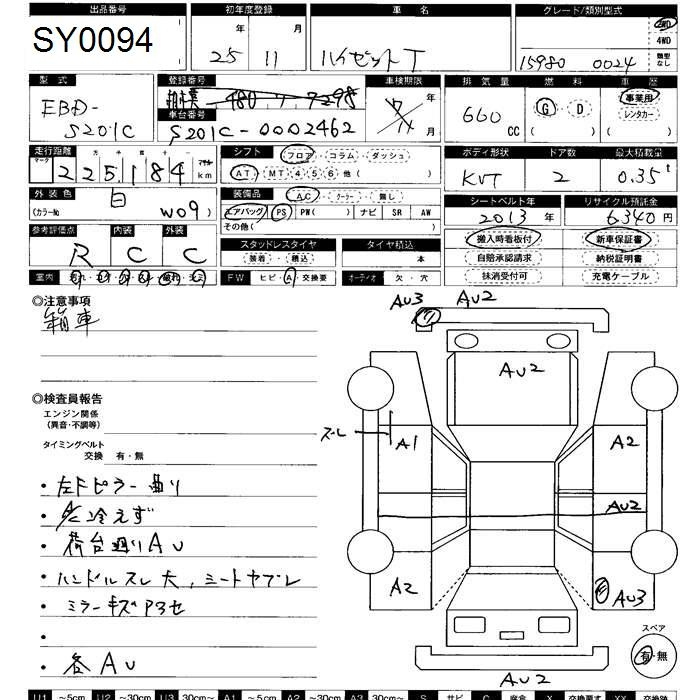 出品番号 初年度登録 車名 グレード/類別型式
SY0094 25年 11月 ハイゼットT 15980 0024 2WD 4WD 類別なし
型式 登録番号 車検期限 排気量 燃料 車歴
EBD-S201C 相模 480 ワ 7298 年 月 660 CC G D ( ) ( ) 事業用 レンタカー ( )
車台番号
S201C-0002462
走行距離 シフト ボディ形状 ドア数 最大積載量
マーク 十万 万 千 百 十 一
225184 マイル km フロア コラム ダッシュ KVT 2 0.35t
AT MT 4 5 6 他 ( )
外装色 装備品 シートベルト年 リサイクル預託金
白 AC クーラー 無し 2013年 6340円
(カラーNo W09) エアバッグ PS PW ( ) ナビ SR AW
その他 ( )
搬入時看板付 新車保証書
参考評価点 内装 外装 スタッドレスタイヤ タイヤ積込 自賠承認請求 納税証明書
R C C 装着 積込 本 抹消受付可 充電ケーブル
室内 FW ヒビ A 交換要 オーディオ 欠 穴
◎注意事項
箱車
◎検査員報告
エンジン関係
(異音・不調等)
タイミングベルト
交換 有・無
・左Fピラー曲り
・A/C冷えず
・荷台廻りAU
・ハンドルスレ大,シートヤブレ
・ミラーキズアヨセ
・
・各AU
AU3 AU2
AU2
ズレ A1 A2
AU2
A2 AU3
スペア
有・無
AU2
U1 ~5cm U2 ~30cm U3 30cm~ A1 ~5cm A2 ~30cm A3 30cm~ S サビ C 腐食 X 交換要す XX 交換跡